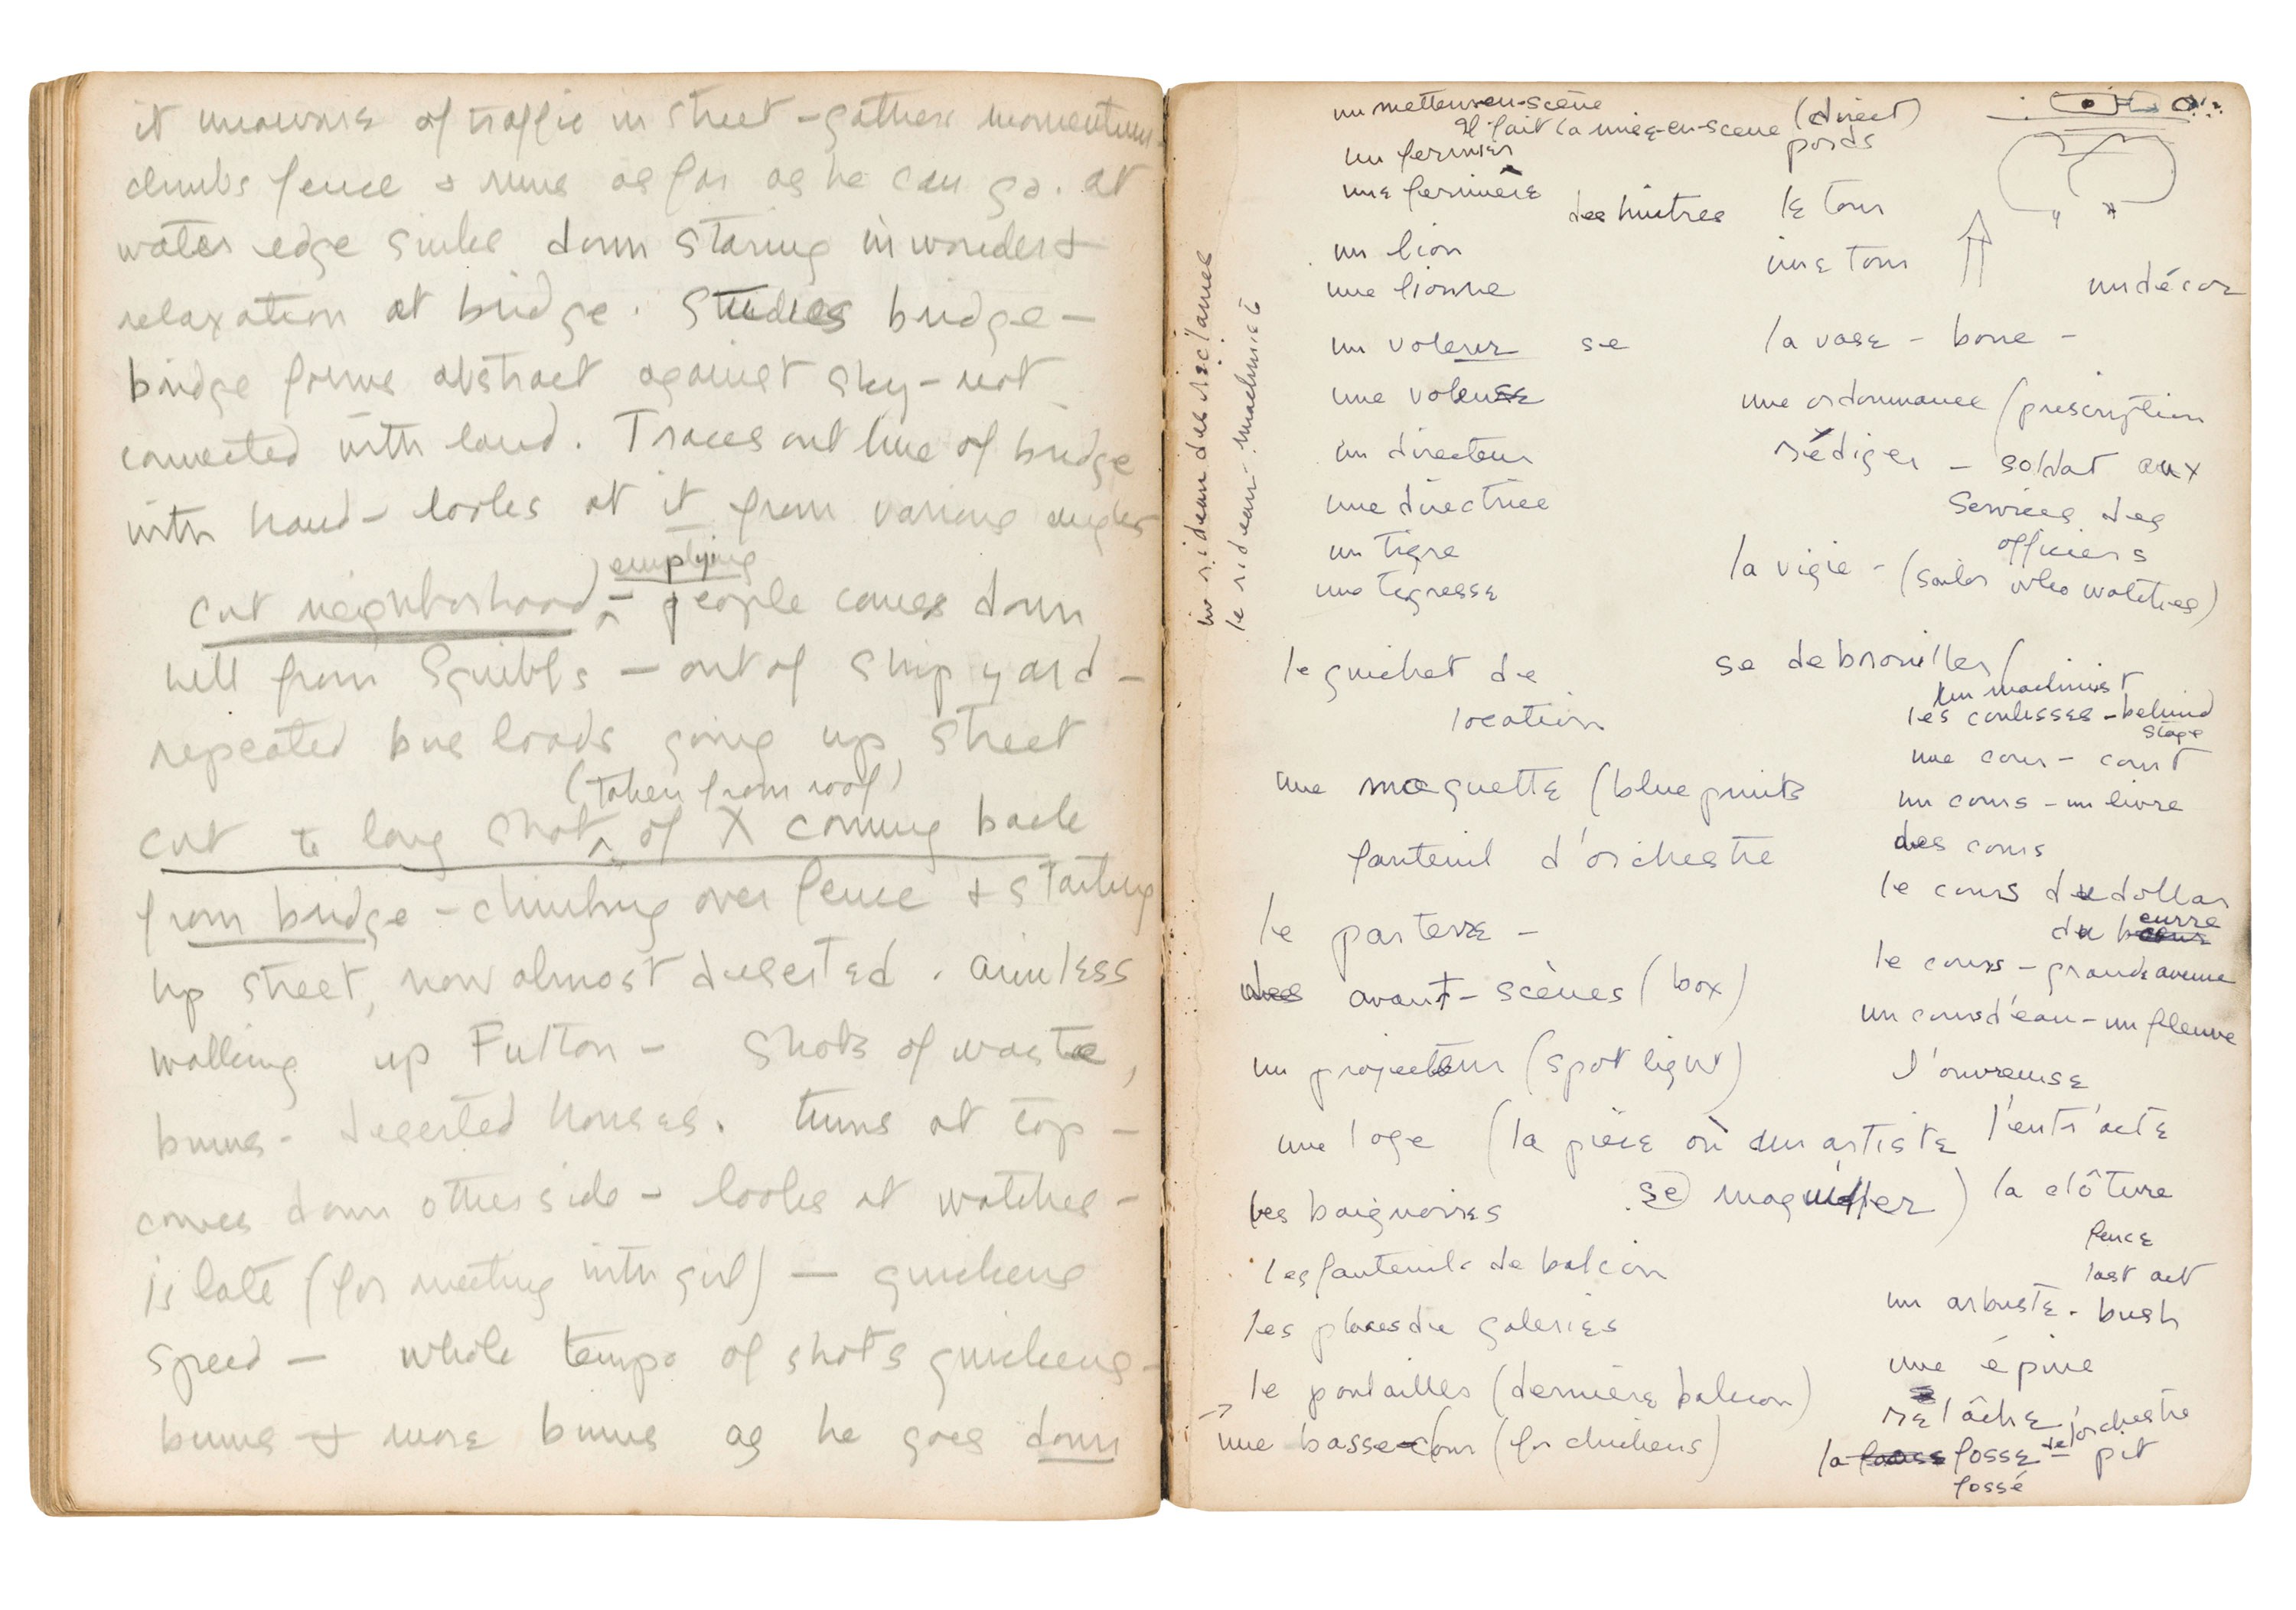 it unaware of traffic in street - gathers momentum -
climbs fence & runs as far as he can go. at
water edge sinks down staring in wonder &
relaxation at bridge. Studies bridge -
bridge forms abstract against sky - not
connected with land. Traces out line of bridge
with hand - looks at it from various angles
emptying
cut neighborhood - people comes down
hill from Squibbs - out of ship yard -
repeated bus loads going up street
(taken from roof)
cut to long shot of X coming back
from bridge - climbing over fence & starting
up street, now almost deserted. aimless
walking up Fulton - shots of waste,
bums - deserted houses. turns at top -
comes down other side - looks at watches -
is late (for meeting with girl) - quickens
speed - whole tempo of shots quickens -
bums & more bums as he goes down
un rideau des réclames
le rideau - machiniste
un metteur-en-scène
Il fait la mise-en-scene (direct)
un fermier
une fermière
un lion
une lionne
un voleur se
une voleuse
un directeur
une directrice
un tigre
une tigresse
le guichet de
location
une maquette (blue prints
fauteuil d'orchestre
le parterre -
des avant-scènes (box)
un projecteur (spot light)
une loge (la pièce où un artiste
se maquiller)
les baignoires
les fauteuils de balcon
les places du galeries
le poulailles (dernière balcon)
→
une basse-cour (for chickens)
poids
des huitres le tour
une tour
un décor
la vase - boue -
une ordonnance (prescription
rédiger - soldat aux
services des
officiers
la vigie - (sailor who watches)
se debrouiller
un machinist
les coulisses - behind
stage
une cour - court
un cours - un livre
des cours
le cours du dollar
du beurre
le cours - grande avenue
un cours d'eau - un fleuve
l'ouvreuse
l'entr'acte
la clôture
fence
last act
un arbuste - bush
une épine
relâche
la fosse de l'orchestre - pit
fossé